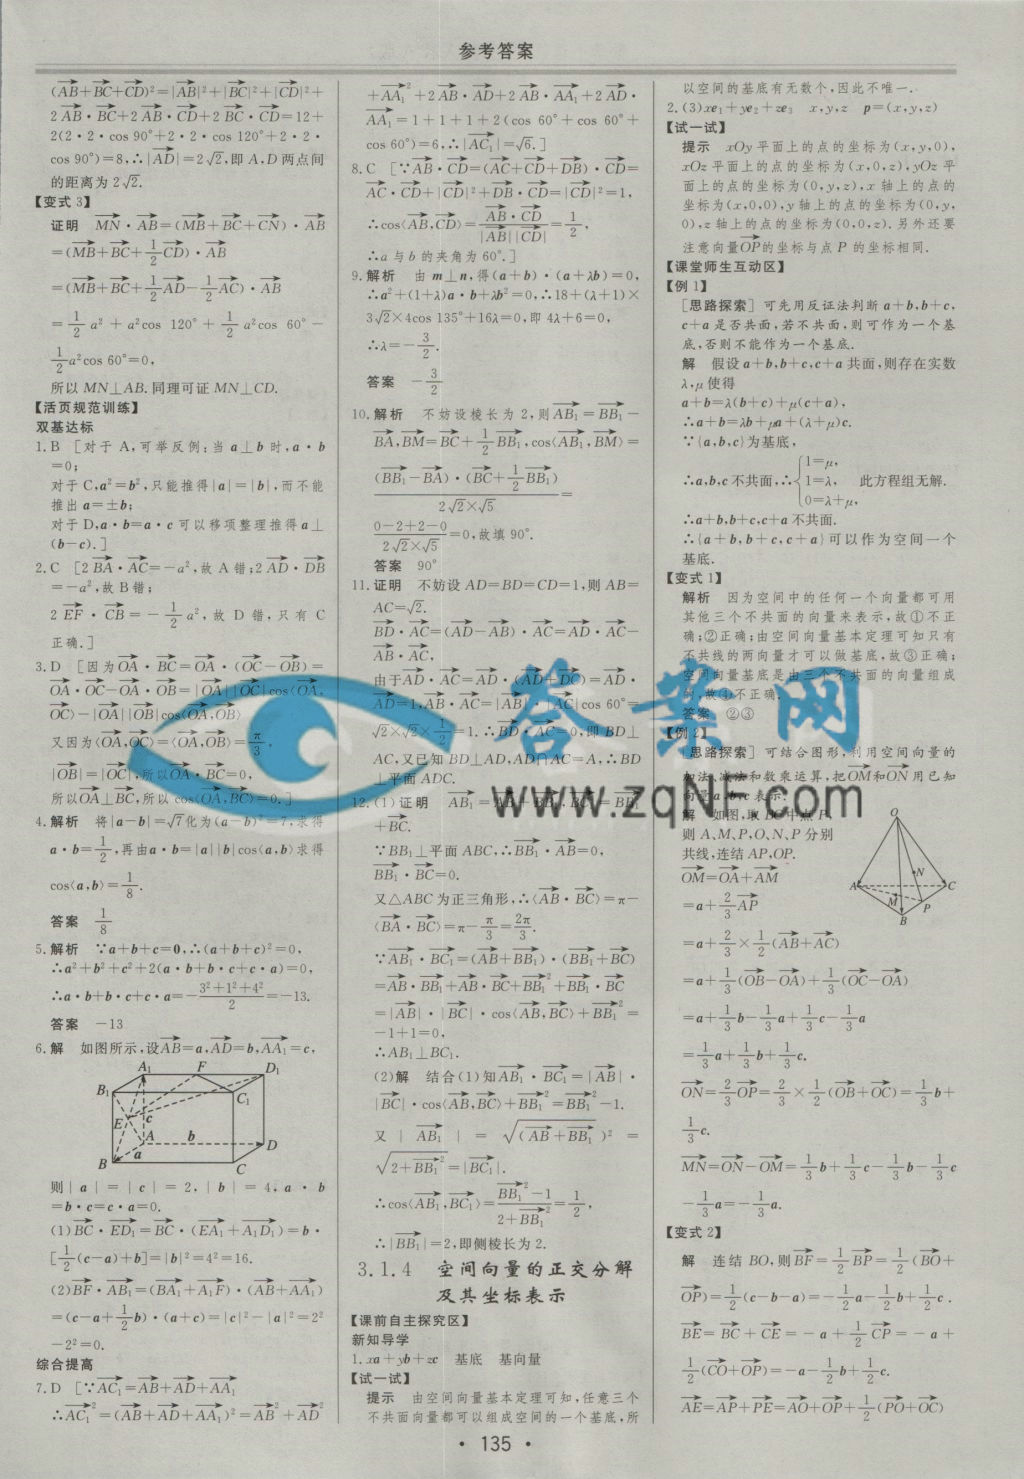 参考答案
(AB+BC+CD)²=|AB|²+|BC|²+|CD|²+
2AB·BC+2AB·CD+2BC·CD=12+
2(2·2·cos 90°+2·2·cos 120°+2·2·
cos 90°)=8,∴|AD|=2√2,即 A,D 两点间
的距离为 2√2.
【变式 3】
证明 MN·AB=(MB+BC+CN)·AB
=(MB+BC+1/2CD)·AB
=(MB+BC+1/2AD-1/2AC)·AB
=1/2a²+a²cos 120°+1/2a²cos 60°-
1/2a²cos 60°=0,
所以 MN⊥AB.同理可证 MN⊥CD.
【活页规范训练】
双基达标
1.B [对于 A,可举反例:当 a⊥b 时,a·b
=0;
对于 C,a²=b²,只能推得|a|=|b|,而不能
推出 a=±b;
对于 D,a·b=a·c 可以移项整理推得 a⊥
(b-c).]
2.C [2BA·AC=-a²,故 A 错;2AD·DB
=-a²,故 B 错;
2EF·CB=-1/2a²,故 D 错,只有 C
正确.]
3.D [因为OA·BC=OA·(OC-OB)=
OA·OC-OA·OB=|OA||OC|cos⟨OA,
OC⟩-|OA||OB|cos⟨OA,OB⟩
又因为⟨OA,OC⟩=⟨OA,OB⟩=π/3,
|OB|=|OC|,所以OA·BC=0,
所以OA⊥BC,所以 cos⟨OA,BC⟩=0.]
4.解析 将|a-b|=√7化为(a-b)²=7,求得
a·b=1/2,再由a·b=|a||b|cos⟨a,b⟩求得
cos⟨a,b⟩=1/8.
答案 1/8
5.解析 ∵a+b+c=0,∴(a+b+c)²=0,
∴a²+b²+c²+2(a·b+b·c+c·a)=0,
∴a·b+b·c+c·a=-(3²+1²+4²)/2=-13.
答案 -13
6.解 如图所示,设AB=a,AD=b,AA₁=c,
A₁ F D₁
B₁ C₁
E c
A b D
a
B C
则|a|=|c|=2,|b|=4,a·b
=b·c=c·a=0.
(1)BC·ED₁=BC·(EA₁+A₁D₁)=b·
[1/2(c-a)+b]=|b|²=4²=16.
(2)BF·AB₁=(BA₁+A₁F)·(AB+AA₁)
=(c-a+1/2b)·(a+c)=|c|²-|a|²=2²
-2²=0.
综合提高
7.D [∵AC₁=AB+AD+AA₁
∴AC₁²=(AB+AD+AA₁)²=AB²+AD²
+AA₁²+2AB·AD+2AB·AA₁+2AD·
AA₁=1+1+1+2(cos 60°+cos 60°+
cos 60°)=6,∴|AC₁|=√6.]
8.C [∵AB·CD=(AC+CD+DB)·CD=
AC·CD+|CD|²+DB·CD=|CD|²=1,
∴cos⟨AB,CD⟩=AB·CD/|AB||CD|=1/2,
∴a 与 b 的夹角为 60°.]
9.解析 由 m⊥n,得(a+b)·(a+λb)=0,
∴a²+(1+λ)a·b+λb²=0,∴18+(λ+1)×
3√2×4cos 135°+16λ=0,即 4λ+6=0,
∴λ=-3/2.
答案 -3/2
10.解析 不妨设棱长为 2,则AB₁=BB₁-
BA,BM=BC+1/2BB₁,cos⟨AB₁,BM⟩=
(BB₁-BA)·(BC+1/2BB₁)/2√2×√5=
0-2+2-0/2√2×√5=0,故填 90°.
答案 90°
11.证明 不妨设 AD=BD=CD=1,则 AB=
AC=√2.
BD·AC=(AD-AB)·AC=AD·AC-
AB·AC,
由于AD·AC=AD·(AD+DC)=AD·
AD=1,AB·AC=|AB|·|AC|cos 60°=
√2×√2×1/2=1.∴BD·AC=0,即 BD⊥
AC,又已知 BD⊥AD,AD∩AC=A,∴BD
⊥平面 ADC.
12.(1)证明 AB₁=AB+BB₁,BC₁=BB₁
+BC.
∵BB₁⊥平面 ABC,∴BB₁·AB=0,
BB₁·BC=0.
又△ABC 为正三角形,∴⟨AB·BC⟩=π-
⟨BA·BC⟩=π-π/3=2π/3.
∵AB₁·BC₁=(AB+BB₁)·(BB₁+BC)
=AB·BB₁+AB·BC+BB₁²+BB₁·BC
=|AB|·|BC|·cos⟨AB,BC⟩+BB₁²=
-1+1=0,
∴AB₁⊥BC₁.
(2)解 结合(1)知AB₁·BC₁=|AB|·
|BC|·cos⟨AB,BC⟩+BB₁²=BB₁²-1.
又|AB₁|=√(AB+BB₁)²=
√2+BB₁²=|BC₁|.
∴cos⟨AB₁,BC₁⟩=BB₁²-1/2+BB₁²=1/2,
∴|BB₁|=2,即侧棱长为 2.
3.1.4 空间向量的正交分解
及其坐标表示
【课前自主探究区】
新知导学
1.xa+yb+zc 基底 基向量
【试一试】
提示 由空间向量基本定理可知,任意三个
不共面向量都可以组成空间的一个基底,所
以空间的基底有无数个,因此不唯一.
2.(3)xe₁+ye₂+ze₃ x,y,z p=(x,y,z)
【试一试】
提示 xOy 平面上的点的坐标为(x,y,0),
xOz 平面上的点的坐标为(x,0,z),yOz 平
面上的点的坐标为(0,y,z),x 轴上的点的
坐标为(x,0,0),y 轴上的点的坐标为(0,y,
0),z 轴上的点的坐标为(0,0,z).另外还要
注意向量OP的坐标与点 P 的坐标相同.
【课堂师生互动区】
【例 1】
[思路探索] 可先用反证法判断 a+b,b+c,
c+a 是否共面,若不共面,则可作为一个基
底,否则不能作为一个基底.
解 假设 a+b,b+c,c+a 共面,则存在实数
λ,μ 使得
a+b=λ(b+c)+μ(c+a),
∴a+b=λb+μa+(λ+μ)c.
∵{a,b,c}为基底,
∴a,b,c 不共面,∴{1=μ, 1=λ, 0=λ+μ, 此方程组无解.
∴a+b,b+c,c+a 不共面.
∴{a+b,b+c,c+a}可以作为空间一个
基底.
【变式 1】
解析 因为空间中的任何一个向量都可用
其他三个不共面的向量来表示,故①不正
确;②正确;由空间向量基本定理可知只有
不共线的两向量才可以做基底,故③正确;
空间向量基底是由三个不共面的向量组成
的,故④不正确.
答案 ②③
【例 2】
[思路探索] 可结合图形,利用空间向量的
加法、减法和数乘运算,把OM和ON用已知
向量 a,b,c 表示.
解 如图,取 BC 中点 P,
则 A,M,P,O,N,P 分别
共线,连结 AP,OP.
O
N
A C
M P
B
OM=OA+AM
=a+2/3AP
=a+2/3×1/2(AB+AC)
=a+1/3(OB-OA)+1/3(OC-OA)
=a+1/3b-1/3a+1/3c-1/3a
=1/3a+1/3b+1/3c.
ON=2/3OP=2/3×1/2(OB+OC)=1/3b+
1/3c.
MN=ON-OM=1/3b+1/3c-1/3b-1/3c
-1/3a=-1/3a.
【变式 2】
解 连结 BO,则BF=1/2BP=1/2(BO+
OP)=1/2(c-b-a)=-1/2a-1/2b+1/2c.
BE=BC+CE=-a+1/2CP=-a+
1/2(CO+OP)=-a-1/2b+1/2c.
AE=AP+PE=AO+OP+1/2(PO+OC)
·135·
答案网
www.zqNF.com